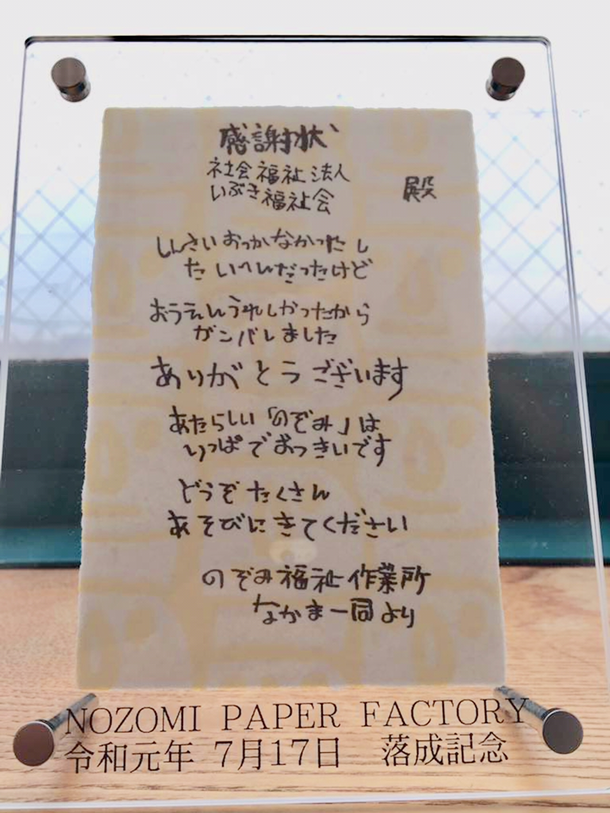 感謝状
社会福祉法人
いぶき福祉会 殿
しんさいおっかなかったし
たいへんだったけど
おうえんうれしかったから
ガンバしました
ありがとうございます
あたらしい「のぞみ」は
りっぱでおっきいです
どうぞたくさん
あそびにきてください
のぞみ福祉作業所
なかま一同より
NOZOMI PAPER FACTORY
令和元年 7月17日 落成記念